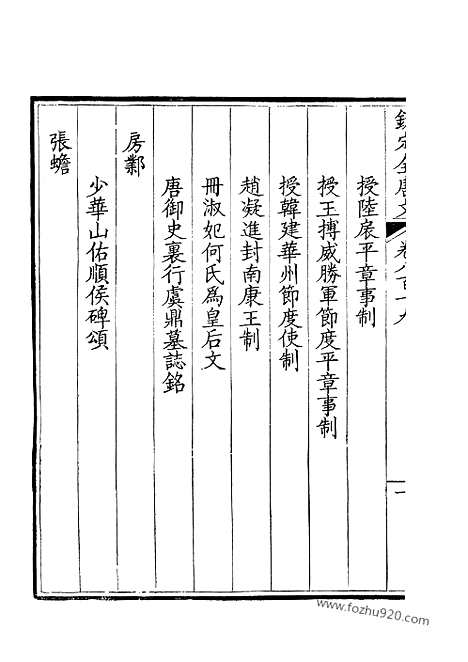 欽定全唐文 卷八百十九
一
授陸扆平章事制
授王搏威勝軍節度平章事制
授韓建華州節度使制
趙凝進封南康王制
冊淑妃何氏爲皇后文
唐御史裏行虞鼎墓誌銘
房鄴
少華山佑順侯碑頌
張蟾
www.fozhu920.com